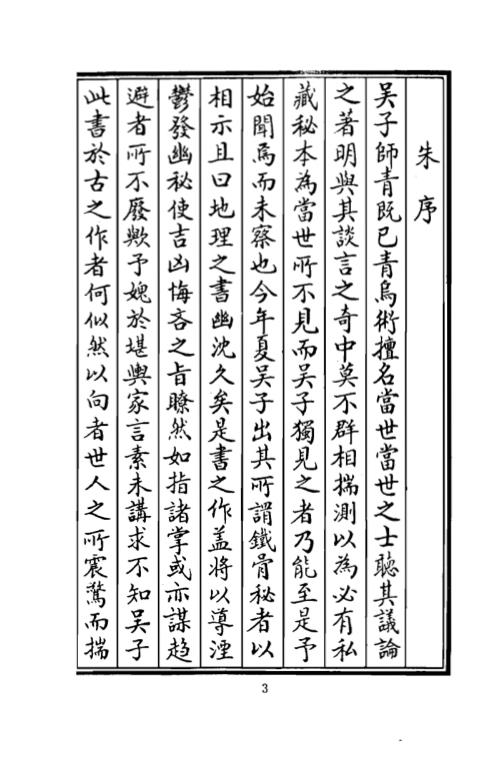 朱序
吴子師青既已青烏術擅名當世當世之士聽其議論
之著明與其談言之奇中莫不群相揣測以為必有私
藏秘本為當世所不見而吴子獨見之者乃能至是予
始聞焉而未察也今年夏吴子出其所謂鐵骨秘者以
相示且曰地理之書幽沈久矣是書之作盖將以導湮
鬱發幽秘使吉凶悔吝之旨瞭然如指諸掌或亦謀趋
避者所不廢歟予媿於堪輿家言素未講求不知吴子
此書於古之作者何似然以向者世人之所震驚而揣
3